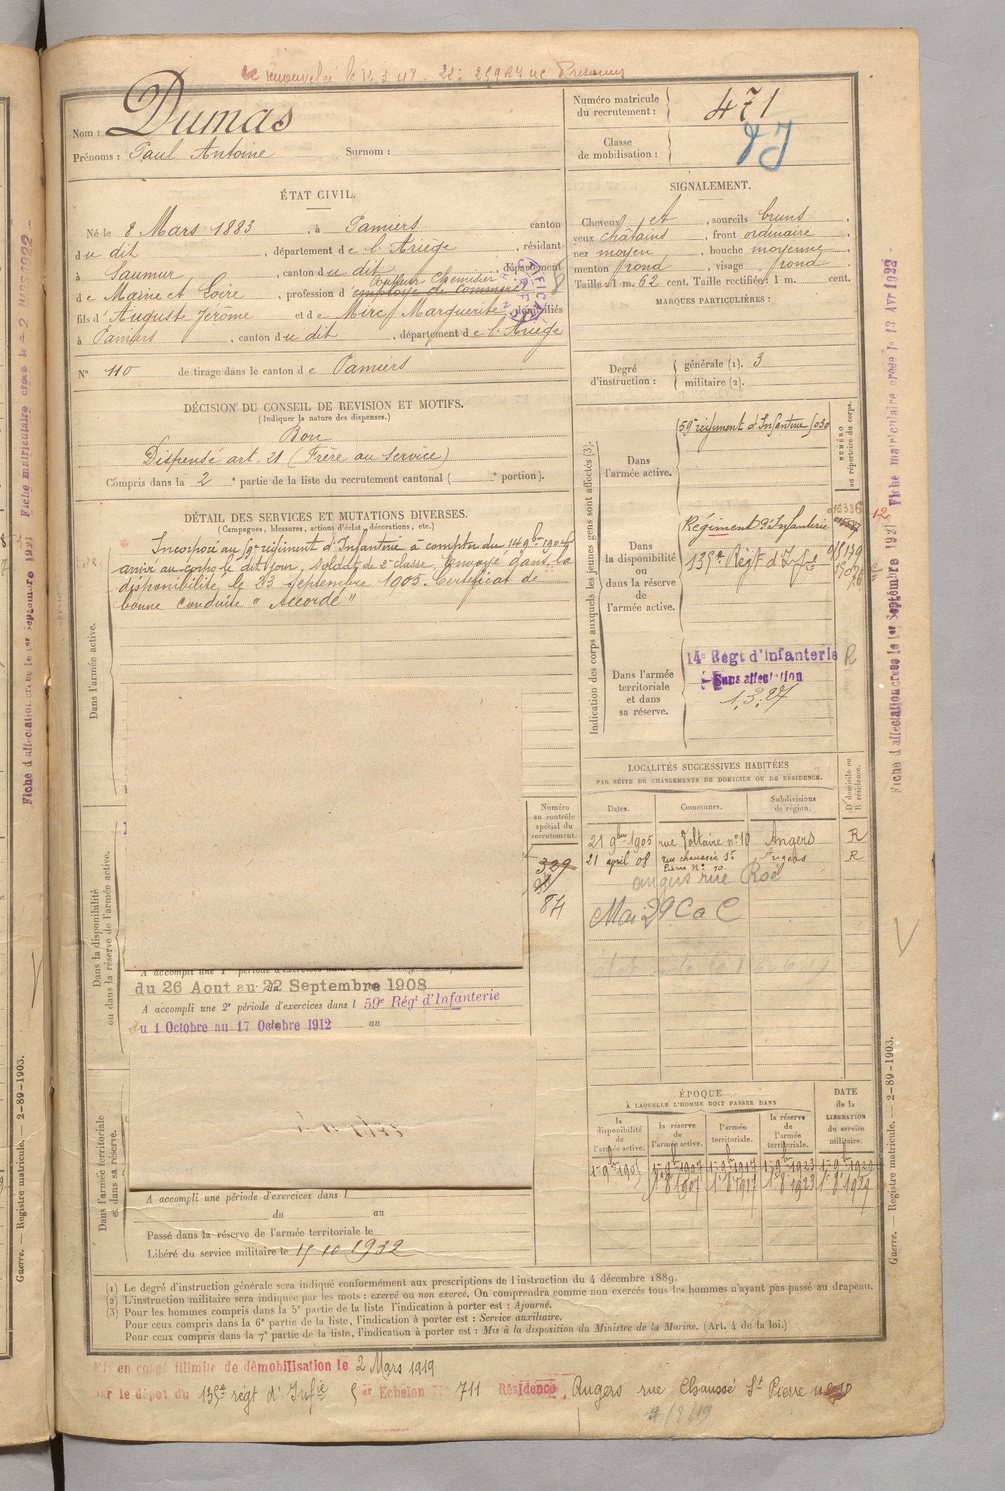 renouvelé le
Nom : Dumas
Prénoms : Paul Antoine Surnom :
Numéro matricule du recrutement : 471
Classe de mobilisation :
ÉTAT CIVIL.
Né le 8 Mars 1883, à Pamiers canton
du dit, département de l'Ariège, résidant
à Saumur, canton du dit, département
Coupeur Chemisier
de Maine et Loire, profession d'employé de commerce
fils d'Auguste Jérôme et de Mirc Marguerite domiciliés
à Pamiers, canton du dit, département de l'Ariège
N° 110 de tirage dans le canton de Pamiers
SIGNALEMENT.
Cheveux et, sourcils bruns,
yeux châtains, front ordinaire,
nez moyen, bouche moyenne,
menton rond, visage rond
Taille : 1 m. 62 cent. Taille rectifiée : 1 m. cent.
MARQUES PARTICULIÈRES :
Degré d'instruction : générale (1). 3
militaire (2).
DÉCISION DU CONSEIL DE REVISION ET MOTIFS.
(Indiquer la nature des dispenses.)
Bon
Dispensé art. 21 (Frère au service)
Compris dans la 2e partie de la liste du recrutement cantonal ( e portion).
DÉTAIL DES SERVICES ET MUTATIONS DIVERSES.
(Campagnes, blessures, actions d'éclat, décorations, etc.)
Incorporé au régiment d'Infanterie à compter du 14 9bre 1904
arrivé au corps le dit jour, Soldat de 2e classe. Envoyé dans la
disponibilité le 23 Septembre 1905. Certificat de
bonne conduite "Accordé"
Dans l'armée active.
Indication des corps auxquels les jeunes gens sont affectés (3).
NUMÉRO au répertoire du corps.
Dans l'armée active.
59e régiment d'Infanterie
Dans la disponibilité ou dans la réserve de l'armée active.
Régiment d'Infanterie
135e Régt d'Infie
Dans l'armée territoriale et dans sa réserve.
14e Régt d'infanterie
Sans affectation
1.3.27
LOCALITÉS SUCCESSIVES HABITÉES
PAR SUITE DE CHANGEMENTS DE DOMICILE OU DE RÉSIDENCE.
Dates. Communes. Subdivisions de région. D. domicile ou R. résidence.
21 9bre 1905 rue Voltaire n° 10 Angers R
21 april 08 rue chaussée St Pierre N° 10 Angers R
angers rue Roë
Mai 29 C a C
Numéro au contrôle spécial du recrutement.
329
84
Dans la disponibilité ou dans la réserve de l'armée active.
A accompli une 1e période d'exercices dans
du 26 Aout au 22 Septembre 1908
A accompli une 2e période d'exercices dans l 59e Régt d'Infanterie
du 1 Octobre au 17 Octobre 1912 au
ÉPOQUE
À LAQUELLE L'HOMME DOIT PASSER DANS
la disponibilité de l'armée active. la réserve de l'armée active. l'armée territoriale. la réserve de l'armée territoriale. DATE de la LIBÉRATION du service militaire.
Dans l'armée territoriale et dans sa réserve.
A accompli une période d'exercices dans l
du au
Passé dans la réserve de l'armée territoriale le
Libéré du service militaire le 15 10 1932
(1) Le degré d'instruction générale sera indiqué conformément aux prescriptions de l'instruction du 4 décembre 1889.
(2) L'instruction militaire sera indiquée par les mots : exercé ou non exercé. On comprendra comme non exercés tous les hommes n'ayant pas passé au drapeau.
(3) Pour les hommes compris dans la 5e partie de la liste l'indication à porter est : Ajourné.
Pour ceux compris dans la 6e partie de la liste, l'indication à porter est : Service auxiliaire.
Pour ceux compris dans la 7e partie de la liste, l'indication à porter est : Mis à la disposition du Ministre de la Marine. (Art. 4 de la loi.)
Mis en congé illimité de démobilisation le 2 Mars 1919
par le dépôt du 135e regt d'Infie er Echelon N° 711 Résidence Angers rue Chaussé St Pierre
Fiche d'affectation créée le 1er Septembre 1921 Fiche matriculaire créée le 13 Avr 1922
Guerre. — Registre matricule. — 2-89-1903.
Fiche d'affectation créée le 1er Septembre 1921 Fiche matriculaire créée le 2 1922
Guerre. — Registre matricule. — 2-89-1903.